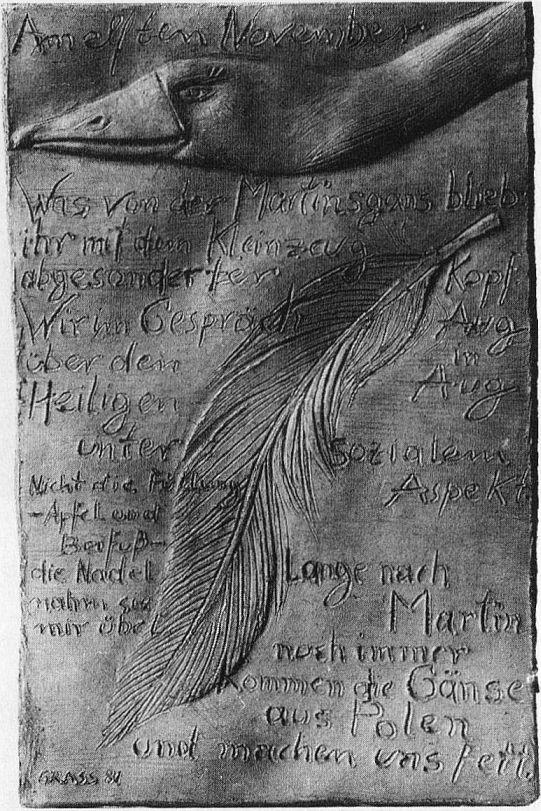 Am elften November
Was von der Martinsgans blieb
ihr mit dem Kleinzeug
abgesonderter Kopf
Wir im Gespräch Aug
über den in
Heiligen Aug
unter sozialem
Nicht die Füllung Aspekt.
-Äpfel und
Beifuß-
die Nadel Lange nach
nahm sie Martin
mir übel noch immer
kommen die Gänse
aus Polen
und machen uns fett.
GRASS 81